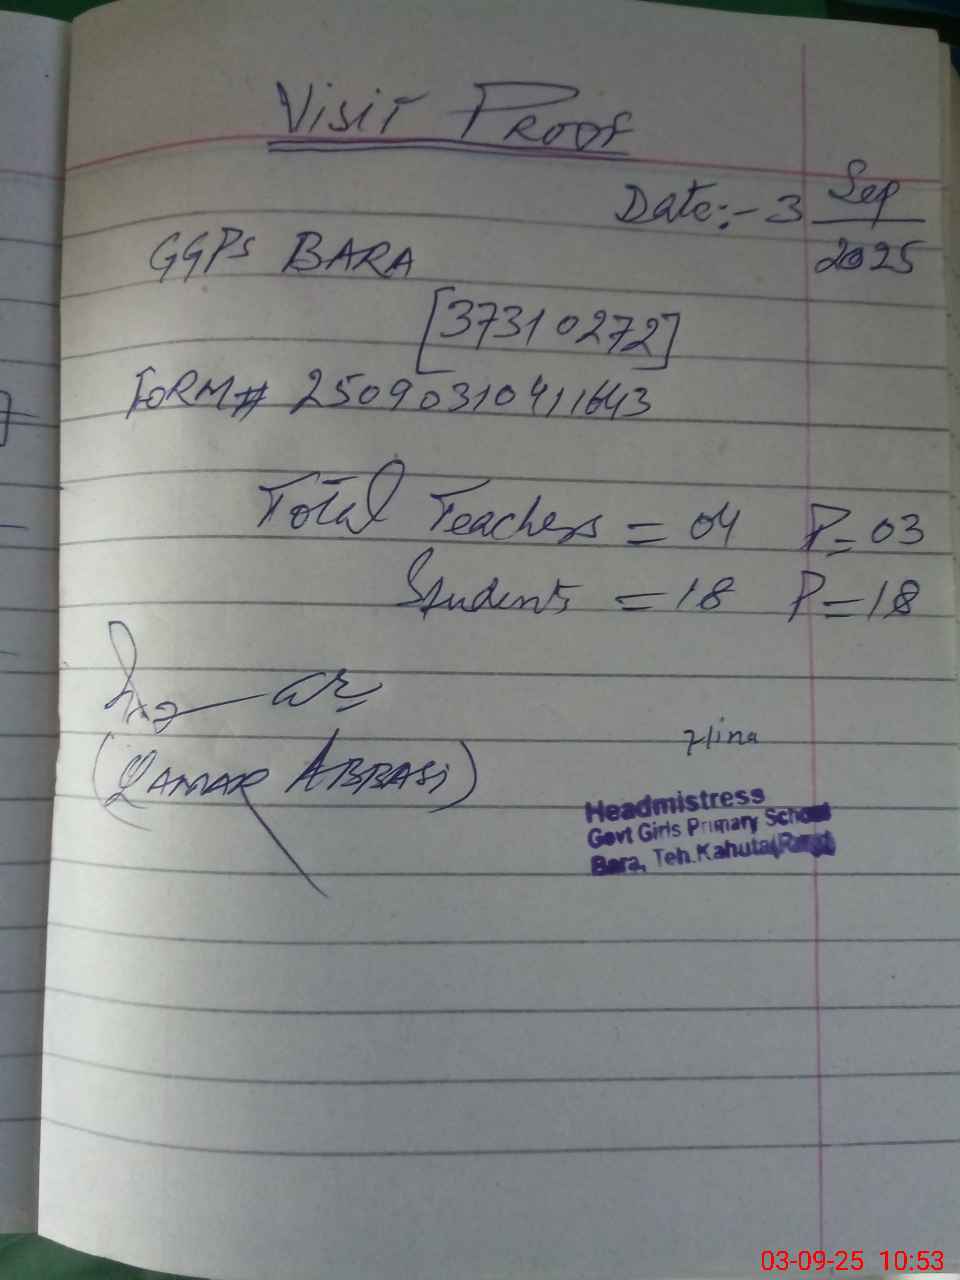 Visit Proof
Date:- 3 Sep
2025
GGPS BARA
[37310272]
FORM# 25090310411643
Total Teachers = 04 P = 03
Students = 18 P = 18
(QAMAR ABBASI)
Hina
Headmistress
Govt Girls Primary School
Bara, Teh. Kahuta
03-09-25 10:53